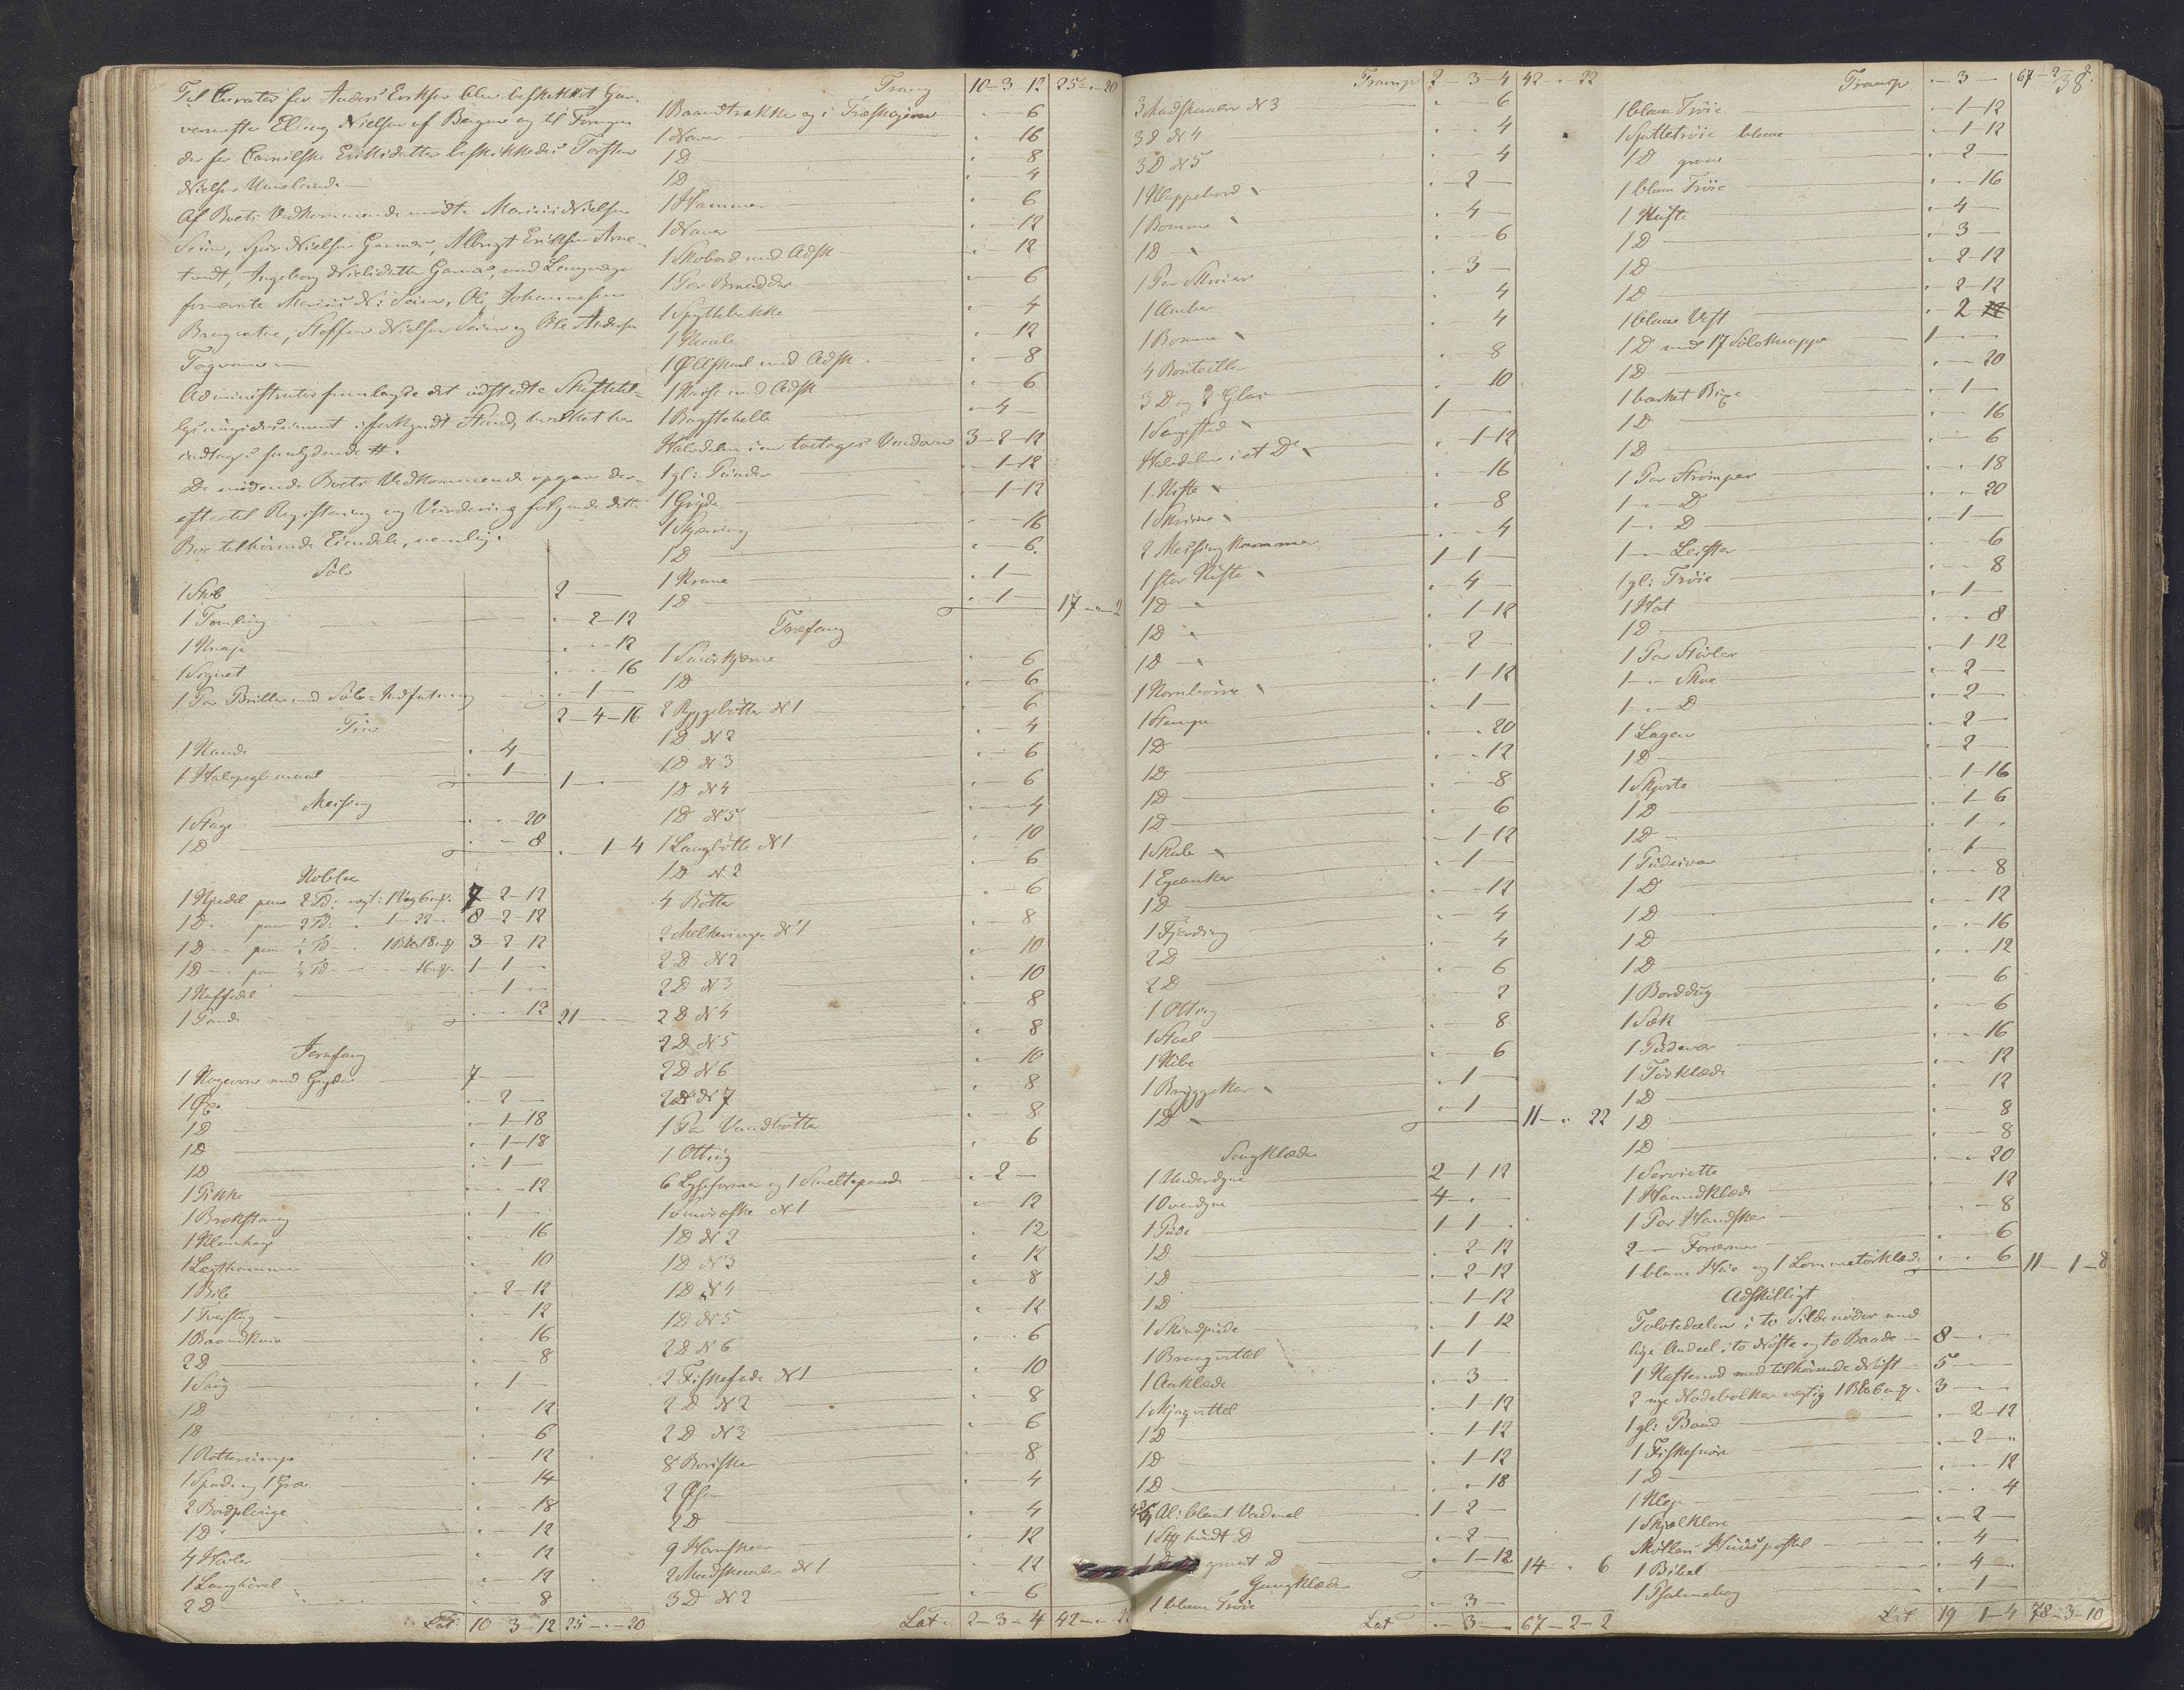 Til Curator for Anders Eriksen blev beskikket Gar-
vermester Elling Nielsen af Bergen og til Formyn-
der for Eriksdatter beskikkedes Torsten
Nielsen
Af Boets Vedkommende mødte Marius Nielsen
Seim, Nielsen Garnæs, Albrigt Eriksen Arne-
tvedt, Ingeborg Nielsdatter Garnæs, med Laugværge
fornævnte Marius N: Seim, Ole Johannesen
Steffen Nielsen Seim og Ole Andersen
Administrator fremlagde det udstedte Skiftetil-
lysningsdocument i forkyndt Stand, hvilket her
indtages saalydende #.
De mødende Boets Vedkommende opgav der-
efter til Registering og Vurdering følgende dette
Boe tilhørende Eiendele, nemlig:
Sølv
1 Skeb 2 —
1 Tomling . — 2 — 12
1 Knap . — . — 12
1 Signet . — . — 16
1 Par Briller med Sølv-Indfatning . — 1 —
2 — 4 — 16
Tin
1 Kande . — 4 —
1 Halvpæglemaal . — 1 — 1 —
Messing
1 Stage . — . — 20
1 D . — . — 8 . 1 — 4
Kobber
1 Kjedel paa 2 Td: vægt: 1 Vog 6 mk. 7 — 2 — 12
1 D. paa 2 Td: . 1 — 22 — 8 — 2 — 12
1 D — paa ½ Td — . 3 — 2 — 12
1 D — paa ¼ Td — 16 mk. 1 — 1 —
1 Kaffedel . — 1 —
1 Pande . — . — 12 21 —
Jernfang
1 Kogeovn med Gryder 7 —
1 Øxe . — 2 —
1 D . — 1 — 18
1 D . — 1 — 18
1 D . — 1 —
1 Pikke . — . — 12
1 Brækstang . — 1 —
1 Klomhage . — . — 16
1 Lægthammer . — . — 10
1 Bile . — 2 — 12
1 Tverslug . — . — 12
1 Baandkniv . — . — 16
2 D . — . — 8
1 Saug . — 1 —
1 D . — . — 12
1 D . — . — 6
1 . — . — 12
1 Spade og 1 Græv . — . — 14
2 Bordplinge . — . — 18
1 D . — . — 12
4 Høvler . — . — 12
1 Langhøvel . — . — 12
2 D . — . — 8
Lat: 10 — 3 — 12 25 — . — 20
Transp 10 — 3 — 12 25 — . — 20
1 Baandtrække og 1 . — . — 6
1 Naver . — . — 16
1 D . — . — 8
1 D . — . — 4
1 Hammer . — . — 6
1 Naver . — . — 12
1 Skobord med Adsk . — . — 12
1 Par . — . — 6
1 Spyttebakke . — . — 4
1 . — . — 12
1 Ølskaal med Adsk . — . — 8
1 Kasse med Adsk . — . — 6
1 Bagstehelle . — 4 —
Halvdelen i en toetages Vindovn 3 — 2 — 12
1 gl: Pünder . — 1 — 12
1 Gryde . — 1 — 12
1 Skjæring . — . — 16
1 D . — . — 6
1 Krane . — 1 —
1 D . — 1 — 17 — . — 2
Træfang
1 Smørkjærne . — . — 6
1 D . — . — 6
2 Ryggebøtter N 1 . — . — 6
1 D N 2 . — . — 4
1 D N 3 . — . — 6
1 D N 4 . — . — 6
1 D N 5 . — . — 4
1 Langbøtte N 1 . — . — 10
1 D N 2 . — . — 6
4 Bøtter . — . — 6
2 Melkeringer N 1 . — . — 8
2 D N 2 . — . — 10
2 D N 3 . — . — 10
2 D N 4 . — . — 8
2 D N 5 . — . — 8
2 D N 6 . — . — 10
2 D N 7 . — . — 8
1 Par Vandbøtter . — . — 8
1 Otting . — . — 6
6 Lyseformer og 1 Smeltepande . — 2 —
1 N 1 . — . — 12
1 D N 2 . — . — 12
1 D N 3 . — . — 12
1 D N 4 . — . — 8
1 D N 5 . — . — 12
2 D N 6 . — . — 6
2 Fiskefade N 1 . — . — 10
2 D N 2 . — . — 8
2 D N 3 . — . — 6
8 Borisker . — . — 8
2 . — . — 4
2 D . — . — 4
9 Hornskeer . — . — 12
2 Madskaaler N 1 . — . — 12
3 D N 2 . — . — 6
Lat: 2 — 3 — 4 42 — . — 22
Transp 2 — 3 — 4 42 — . — 22
3 Madskaaler N 3 . — . — 6
3 D N 4 . — . — 4
3 D N 5 . — . — 4
1 Klappebord . — 2 —
1 Bomme . — 4 —
1 D . — . — 6
1 Par Skrier . — 3 —
1 Amber . — . — 4
1 Bomme . — . — 4
4 Bouteiller . — . — 8
3 D og 2 Glas . — . — 10
1 Sengsted 1 —
Halvdelen i et D . — 1 — 12
1 Kiste . — . — 16
1 Skrine . — . — 8
2 Messing Kammer . — . — 4
1 stor Kiste 1 — 1 —
1 D . — 4 —
1 D . — 1 — 12
1 D . — 2 —
1 Kornbørie . — 1 — 12
1 Stampe . — 1 —
1 D . — . — 20
1 D . — . — 12
1 D . — . — 8
1 D . — . — 6
1 Skab . — 1 — 12
1 Egeanker . — 1 —
1 D . — . — 12
1 Fjerding . — . — 4
2 D . — . — 4
2 D . — . — 6
1 Otting . — . — 2
1 Stoel . — . — 8
1 Kibe . — . — 6
1 Bryggekar . — 1 —
1 D . — 1 — 11 — . — 22
Sengklæder
1 Underdyne 2 — 1 — 12
1 Overdyne 4 — . —
1 Pude 1 — 1 —
1 D . — 2 — 12
1 D . — 2 — 12
1 D . — 1 — 12
1 Skindpude . — 1 — 12
1 Brangvittel 1 — 1 —
1 Aaklæde . — 3 —
1 Kjagvittel . — 1 — 12
1 D . — 1 — 12
1 D . — 1 — 12
1 D . — . — 18
Al: blaat Vadmel 1 — 2 —
1 Stk hvidt D . — 2 —
1 D graat D . — 1 — 12 14 — . — 6
Gangklæder
1 blaa Trøie . — 3 —
Lat . — 3 — 67 — 2 — 2
38.
Transp . — 3 — 67 — 2 — 2
1 blaa Trøie . — 1 — 12
1 Sputtetrøie blaa . — 1 — 12
1 D graa . — 2 —
1 blaa Trøie . — . — 16
1 Kufte . — 4 —
1 D . — 3 —
1 D . — 2 — 12
1 D . — 2 — 12
1 blaa Vest . — 2
1 D med 17 Sølvknapper 1 —
1 D . — . — 20
1 barket Buxe . — 1 —
1 D . — . — 16
1 D . — . — 6
1 Par Strømper . — . — 18
1 — D . — . — 20
1 — D . — 1 —
1 — Leister . — . — 6
1 gl: Trøie . — . — 8
1 Hat . — 1 —
1 D . — . — 8
1 Par Støvler . — 1 — 12
1 — Skoe . — 2 —
1 — D . — 2 —
1 Lagen . — 2 —
1 D . — 2 —
1 Skjorte . — 1 — 16
1 D . — 1 — 6
1 D . — 1 —
1 Pudevar . — 1 —
1 D . — . — 8
1 D . — . — 12
1 D . — . — 16
1 D . — . — 12
1 Borddug . — . — 6
1 Sæk . — . — 6
1 Pudevar . — . — 16
1 Tørklæde . — . — 12
1 D . — . — 12
1 D . — . — 8
1 D . — . — 8
1 Serviette . — . — 20
1 Haandklæde . — . — 12
1 Par Handsker . — . — 8
2 — Forærmer . — . — 6
1 blaa Hue og 1 Lommetørklæde . — . — 6 11 — 1 — 8
Adskilligt
Tolvtedeelen i to Sildenøder med
lige Andeel i to Nøste og to Baade — 8 —
1 Kastenod med tilhørende Nøst — 5 —
2 nye Nodebolker vægtig 3 —
1 gl: Baad . — 2 — 12
1 Fiskesnøre . — 2 —
1 D . — . — 12
1 Klep . — . — 4
1 Skjælklove . — 2 —
Møllers Huuspostil . — 4 —
1 Bibel . — 4 —
1 Psalmebog . — 1 —
Lat 19 1 — 4 78 — 3 — 10